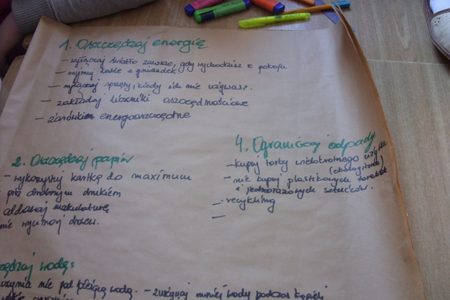 1. Oszczędzaj energię
- wyłączaj światło zawsze, gdy wychodzisz z pokoju
- wyjmij z gniazdek
- wyłączaj sprzęty, kiedy ich nie używasz
- zakładaj liczniki oszczędnościowe
- żarówki energooszczędne
2. Oszczędzaj papier
- wykorzystuj kartkę do maximum
pisz drobnym drukiem
oddawaj makulaturę
nie wycinaj drzew
4. Ograniczaj odpady
- kupuj torby wielokrotnego użytku
(ekologiczne)
- nie kupuj plastikowych torebek
i jednorazowych sztućców.
- recykling
-
ędzaj wodę:
nie pod bieżącą wodą. - zużywaj mniej wody podczas kąpieli